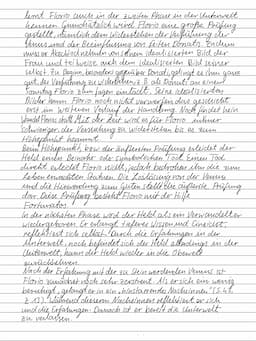 lernt Florio auch in der zweiten Phase in der Unterwelt
kennen. Grundsätzlich wird Florio eine große Prüfung
gestellt, nämlich dem Widerstehen der Verführung der
Venus und der Beeinflussung von Seiten Donatis. Zudem
muss er Abschied nehmen von seinem idealisierten Bild der
Frau und teilweise auch dem idealisierten Bild seiner
selbst. Zu Beginn, besonders gegenüber Donati, gelingt es ihm ganz
gut, der Verführung zu widerstehen, z.B. als Donati an einem
Sonntag Florio zum Jagen einlädt. Seine idealisierten
Bilder kann Florio noch nicht verwerfen, dies geschieht
erst im weiteren Verlauf der Handlung. Doch findet kein
Wandel Florios statt. Mit der Zeit wird es für Florio immer
schwieriger der Versuchung zu widerstehen bis es zum
Höhepunkt kommt.
Beim Höhepunkt, bzw. der äußersten Prüfung erleidet der
Held einen Beinahe- oder symbolischen Tod. Einen Tod
direkt erleidet Florio nicht, jedoch bedrohen ihn die zum
Leben erweckten Statuen. Die Loslösung von der Venus
und die Hinwendung zum Guten stellt die äußerste Prüfung
dar. Diese Prüfung besteht Florio mit der Hilfe
Fortunatos.
In der nächsten Phase wird der Held als ein Verwandelter
wiedergeboren. Er erlangt tieferes Wissen und Einsicht,
reflektiert sich selbst durch die Erfahrungen in der
Unterwelt, noch befindet sich der Held allerdings in der
Unterwelt, kann der Held wieder in die Oberwelt
zurückkehren.
Nach der Erfahrung mit der zu Stein werdenden Venus ist
Florio zunächst noch sehr zerstreut. Als er sich ein wenig
beruhigt, gelangt er in ein „hinstarrendes Nachsinnen" (S.44
Z.13). Während diesem Nachsinnen reflektiert er sich
und die Erfahrungen. Danach ist er bereit die Unterwelt
zu verlassen.